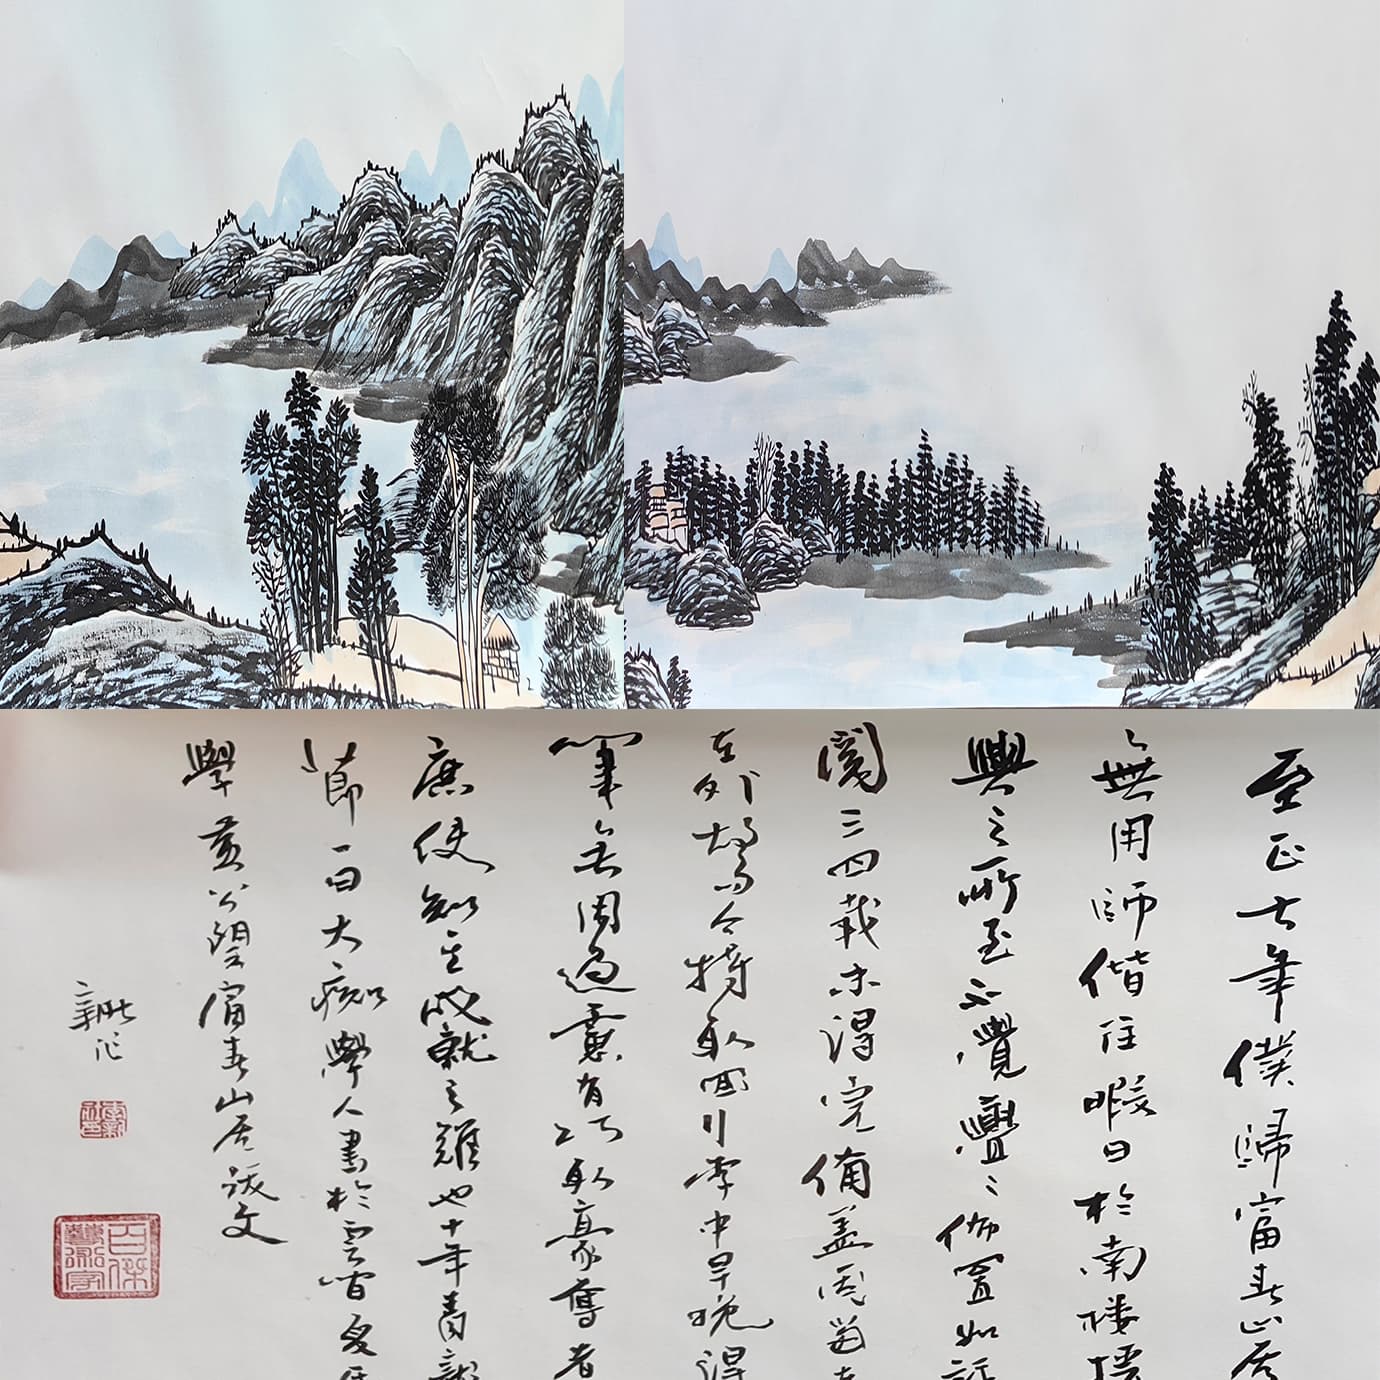 至正七年僕歸富春山居
無用師偕往暇日於南樓援
興之所至不覺亹亹佈置如許
閱三四載未得完備蓋因留在
在外故為今特取回行李中早晚得
筆無用過慮有巧取豪奪者
底使知其成就之難也十年青龍
節一日大癡學人書於雲間夏氏
學黃公望富春山居跋文
百傑